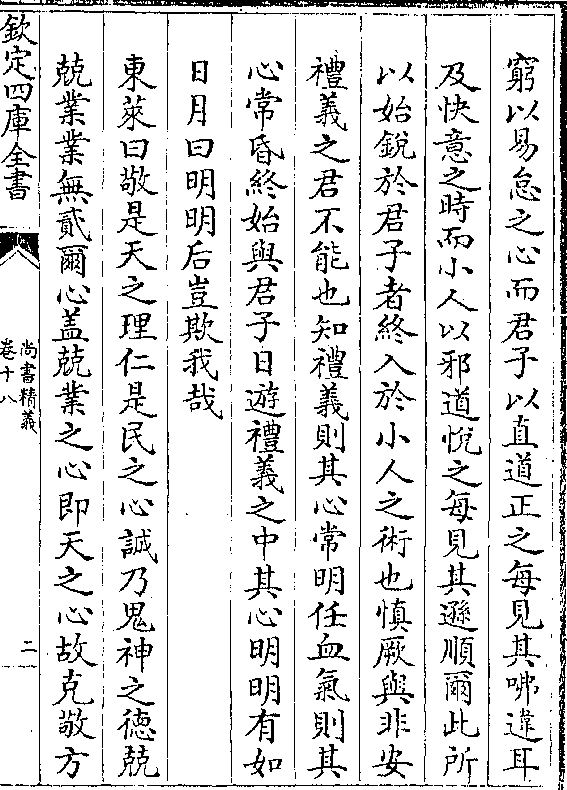 窮以易怠之心而君子以直道正之每見其咈違耳
及快意之時而小人以邪道悅之每見其遜順爾此所
以始銳於君子者終入於小人之術也慎厥與非安
禮義之君不能也知禮義則其心常明任血氣則其
心常昏終始與君子日遊禮義之中其心明明有如
日月曰明明后豈欺我哉
東萊曰敬是天之理仁是民之心誠乃鬼神之德兢
兢業業無貳爾心盖兢業之心即天之心故克敬方
欽定四庫全書
尚書精義
卷十八
二